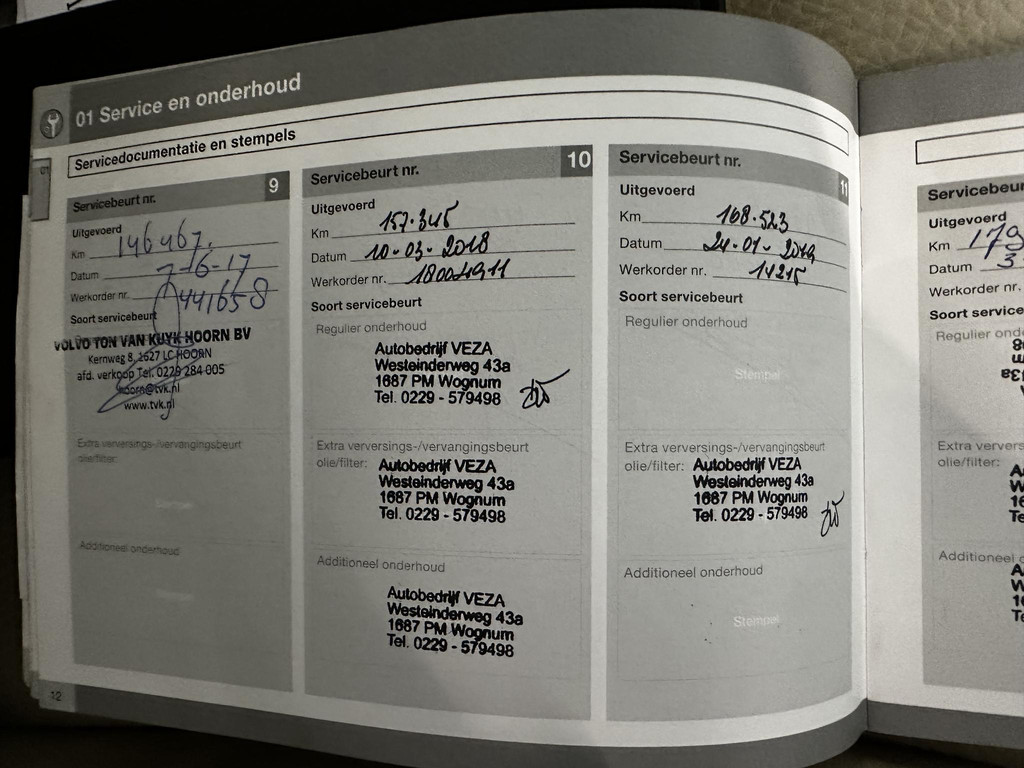 01 Service en onderhoud
01
Servicedocumentatie en stempels
Servicebeurt nr. 9
Uitgevoerd
Km 146467.
Datum 7-6-17
Werkorder nr. 441658
Soort servicebeurt
VOLVO TON VAN KUYK HOORN BV
Kernweg 8, 1627 LC HOORN
afd. verkoop Tel. 0229 284 005
hoorn@tvk.nl
www.tvk.nl
Extra verversings-/vervangingsbeurt
olie/filter:
Stempel
Additioneel onderhoud
Stempel
12
Servicebeurt nr. 10
Uitgevoerd
Km 157.345
Datum 10-03-2018
Werkorder nr. 18004911
Soort servicebeurt
Regulier onderhoud
Autobedrijf VEZA
Westeinderweg 43a
1687 PM Wognum
Tel. 0229 - 579498
Extra verversings-/vervangingsbeurt
olie/filter:
Autobedrijf VEZA
Westeinderweg 43a
1687 PM Wognum
Tel. 0229 - 579498
Additioneel onderhoud
Autobedrijf VEZA
Westeinderweg 43a
1687 PM Wognum
Tel. 0229 - 579498
Servicebeurt nr. 11
Uitgevoerd
Km 168.523
Datum 24-01-2019
Werkorder nr. 14215
Soort servicebeurt
Regulier onderhoud
Stempel
Extra verversings-/vervangingsbeurt
olie/filter:
Autobedrijf VEZA
Westeinderweg 43a
1687 PM Wognum
Tel. 0229 - 579498
Additioneel onderhoud
Stempel
Servicebeur
Uitgevoerd
Km 179
Datum 3
Werkorder nr.
Soort service
Regulier onde
Extra ververs
olie/filter:
Additioneel o